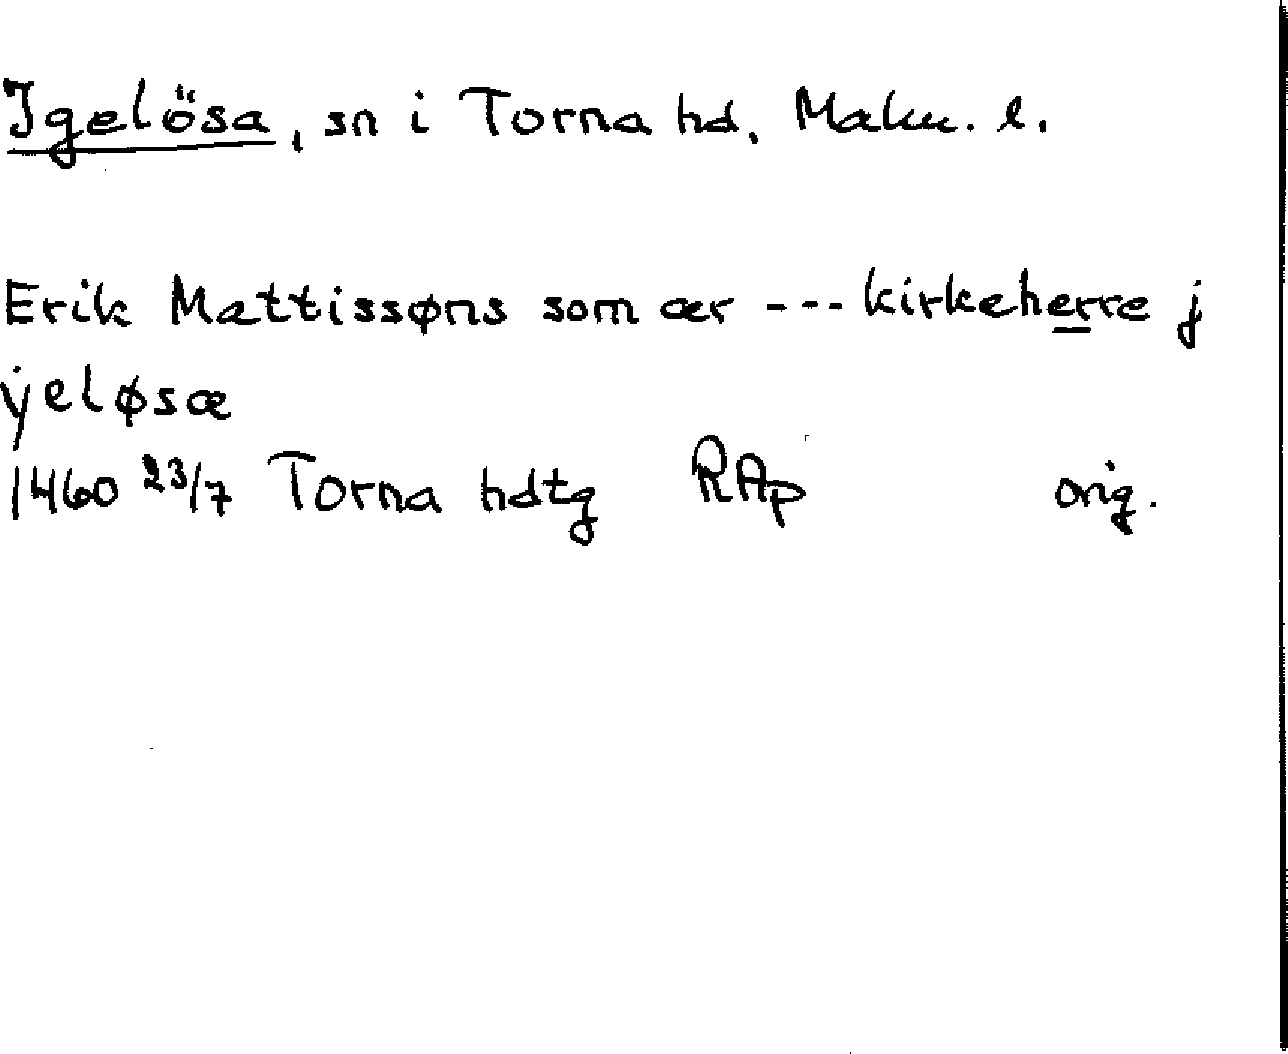 Igelösa, sn i Torna hd. Malm. l.
Erik Mattissøns som ær --- kirkeherre j
ẏeløsæ
1460 23/7 Torna hdtg RAp orig.